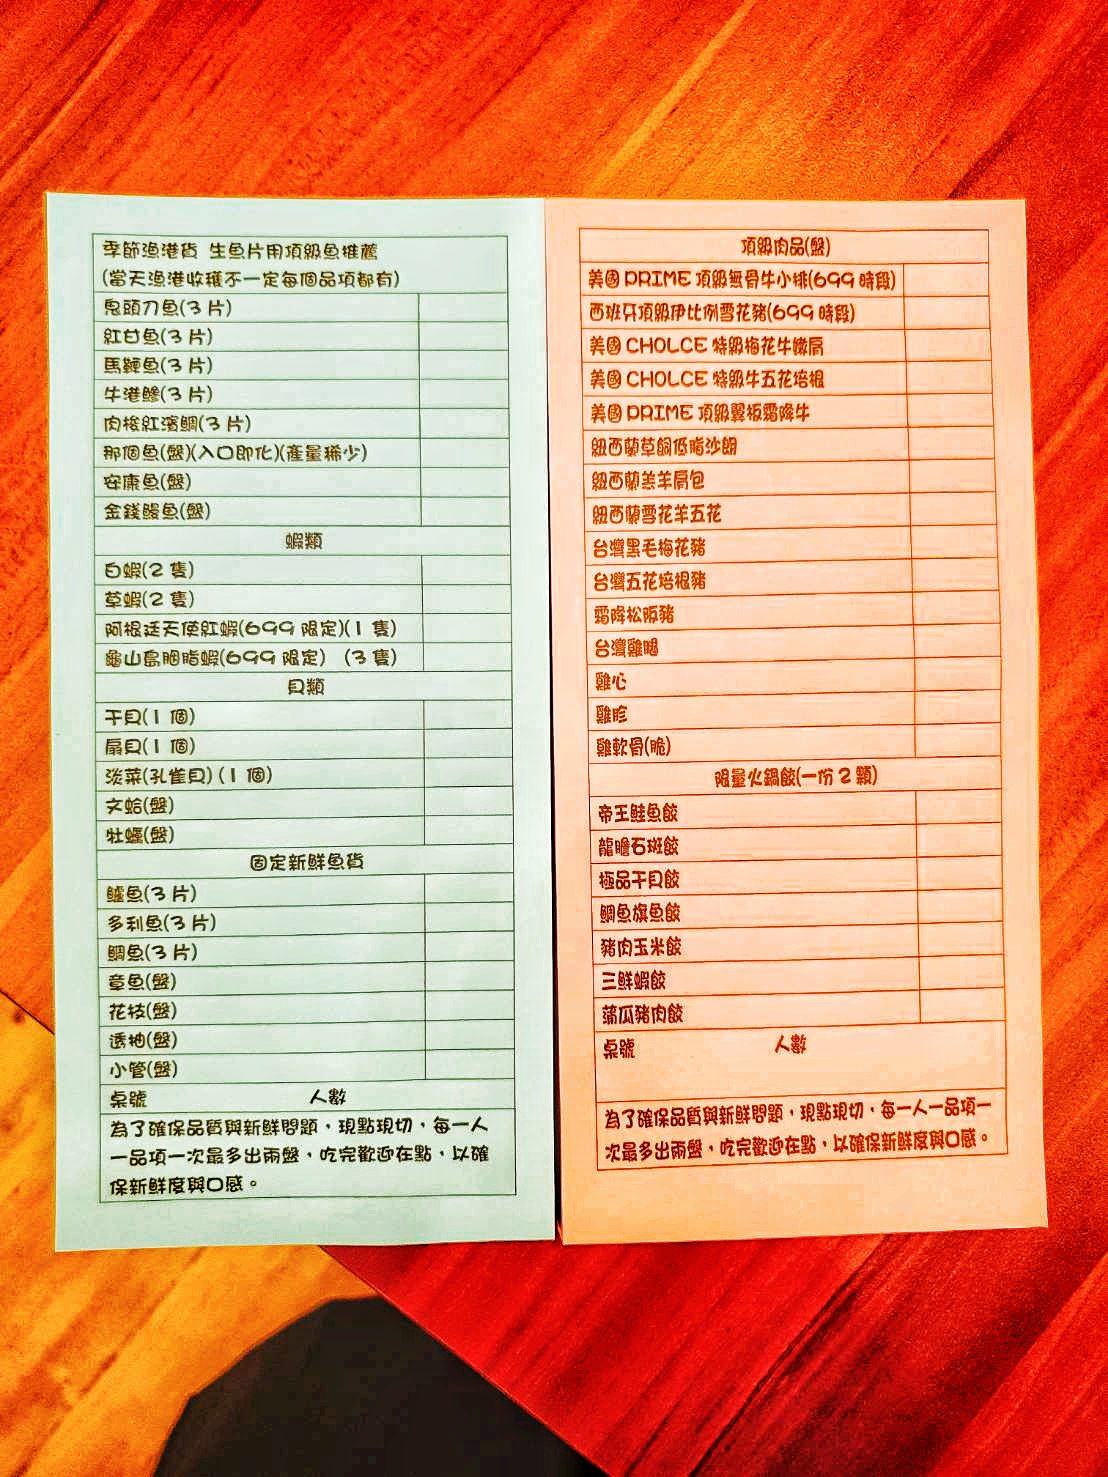 季節漁港貨 生魚片用頂級魚推薦
(當天漁港收穫不一定每個品項都有)
鬼頭刀魚(3 片)
紅甘魚(3 片)
馬鞭魚(3 片)
牛港鰺(3 片)
肉梭紅濱鯛(3 片)
那個魚(盤)(入口即化)(產量稀少)
安康魚(盤)
金錢鰻魚(盤)
蝦類
白蝦(2 隻)
草蝦(2 隻)
阿根廷天使紅蝦(699 限定)(1 隻)
龜山島胭脂蝦(699 限定) (3 隻)
貝類
干貝(1 個)
扇貝(1 個)
淡菜(孔雀貝) (1 個)
文蛤(盤)
牡蠣(盤)
固定新鮮魚貨
鱸魚(3 片)
多利魚(3 片)
鯛魚(3 片)
章魚(盤)
花枝(盤)
透抽(盤)
小管(盤)
桌號 人數
為了確保品質與新鮮問題，現點現切，每一人
一品項一次最多出兩盤，吃完歡迎在點，以確
保新鮮度與口感。
頂級肉品(盤)
美國 PRIME 頂級無骨牛小排(699 時段)
西班牙頂級伊比例雪花豬(699 時段)
美國 CHOLCE 特級梅花牛嫩肩
美國 CHOLCE 特級牛五花培根
美國 PRIME 頂級翼板霜降牛
紐西蘭草飼低脂沙朗
紐西蘭羔羊肩包
紐西蘭雪花羊五花
台灣黑毛梅花豬
台灣五花培根豬
霜降松阪豬
台灣雞腿
雞心
雞胗
雞軟骨(脆)
限量火鍋餃(一份 2 顆)
帝王鮭魚餃
龍膽石斑餃
極品干貝餃
鯛魚旗魚餃
豬肉玉米餃
三鮮蝦餃
蒲瓜豬肉餃
桌號 人數
為了確保品質與新鮮問題，現點現切，每一人一品項一
次最多出兩盤，吃完歡迎在點，以確保新鮮度與口感。